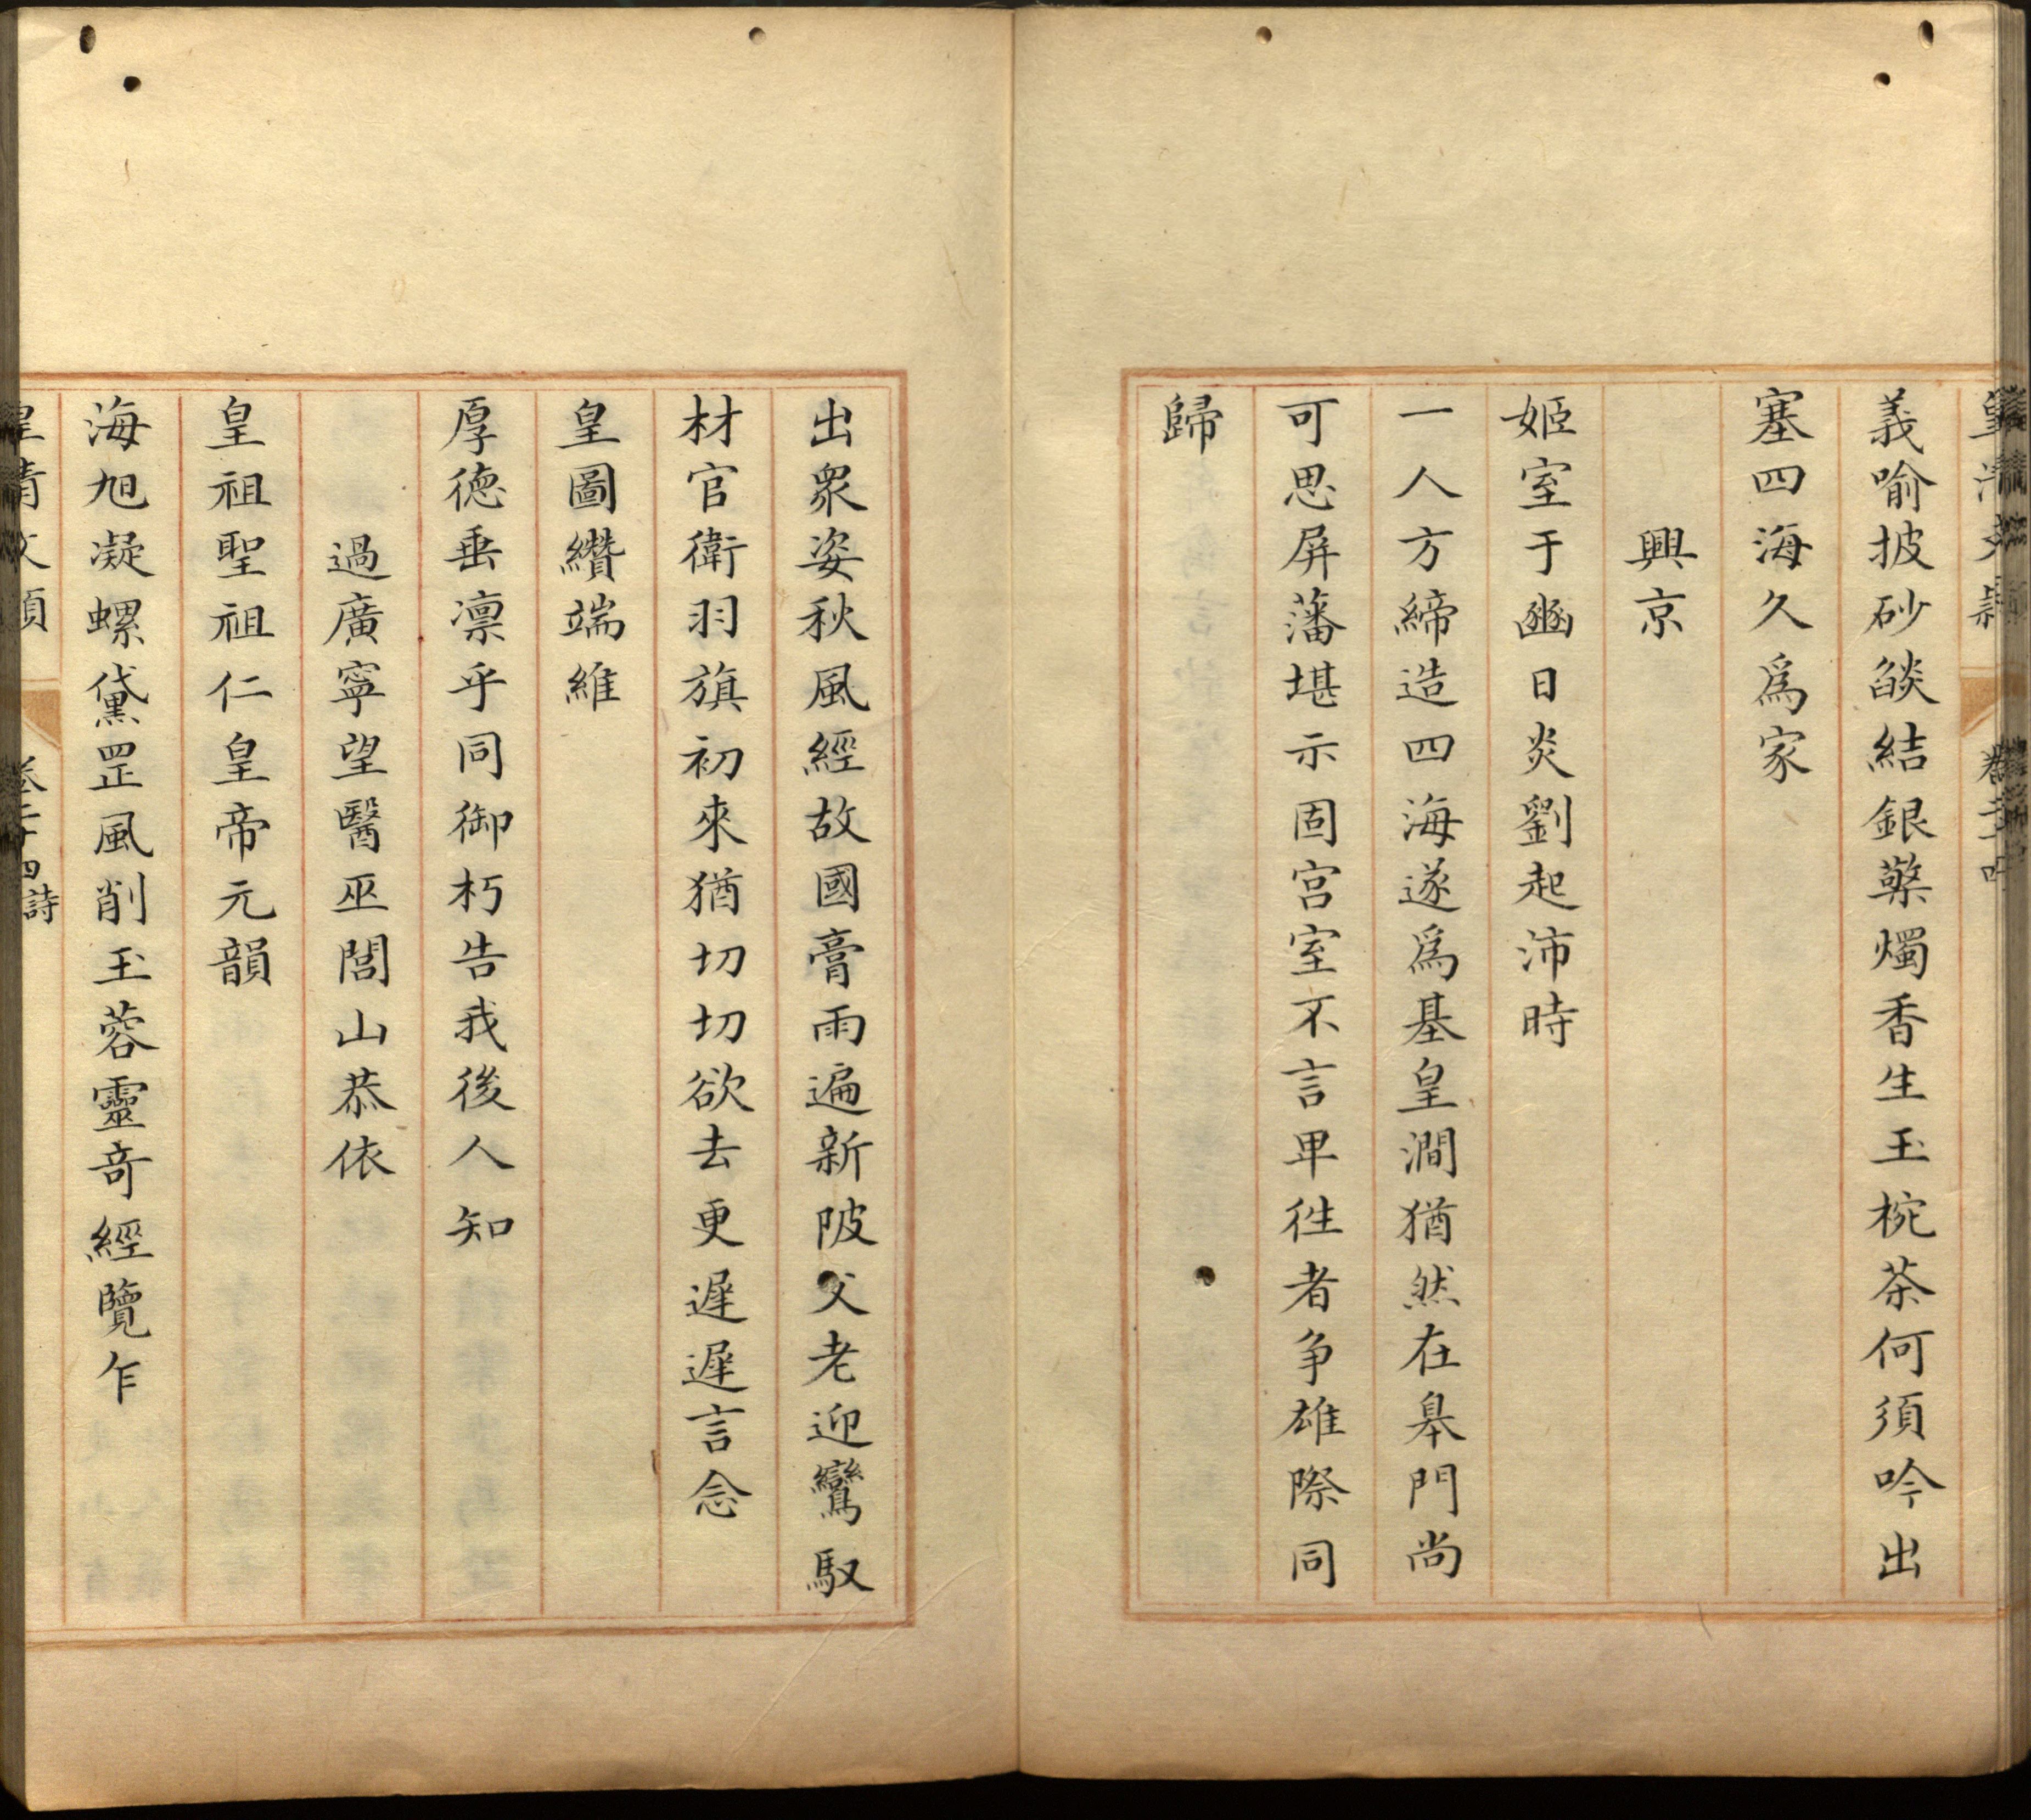 義喻披砂燄結銀檠燭香生玉椀茶何須吟出
塞四海久爲家
興京
姬室于豳日炎劉起沛時
一人方締造四海遂爲基皇澗猶然在臯門尚
可思屏藩堪示固宫室不言卑徃者争雄際同
歸
出衆姿秋風經故國膏雨遍新陂父老迎鸞馭
材官衛羽旗初來猶切切欲去更遲遲言念
皇圖纘端維
厚德垂凛乎同御朽告我後人知
過廣寧望醫巫閭山恭依
皇祖聖祖仁皇帝元韻
海旭凝螺黛罡風削玉蓉靈竒經覽乍
皇清文頴
卷二十四詩